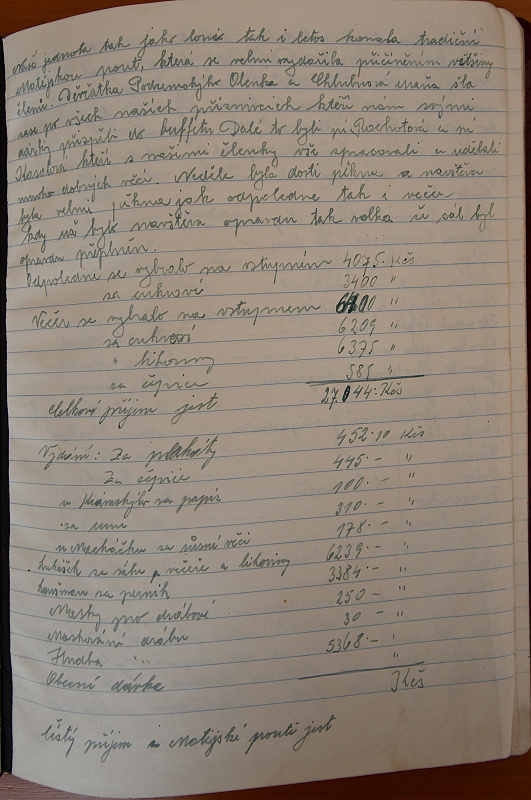 Naše jednota tak jako loni tak i letos konala tradiční
Matějskou pouť, která se velmi vydařila přičiněním většiny
členů. Děvčátka Podzemských Olenka a Chlubnová Maňa šla
zase po všech našich příznivcích kteří nám svými
dárky přispěli do buffetu Dále to byli pí Rochotová a pí
kteří s našimi členky vše spracovali a udělali
mnoho dobrých věcí. Neděle byla dosti pěkna a navštěva
byla velmi pěkna jak odpoledne tak i večer
kdy už byla navštěva opravdu tak velka že sál byl
opravdu přeplněn.
Odpoledne se vybralo na vstupném 4075 Kčs
za cukroví 3400 "
Večer se vybralo na vstupnem "
za cukroví 6209 "
" lihoviny 6375 "
za čepice 585 "
Celkový přijem jest 27.044. Kčs
Vydání: Za plakáty 452.10 Kčs
Za čepice 445.- "
u Krámskýho za papír 100.- "
za 310.- "
u Macháčku za různé věci 178.- "
za sálu, večeře a lihoviny 6239.- "
houšman za perník 3384.- "
Masky pro drábové 250 - "
Maskování drábu 30 - "
Hudba " 5368.- "
Obecní dávka "
Kčs
čistý přijem z Matějské poutě jest